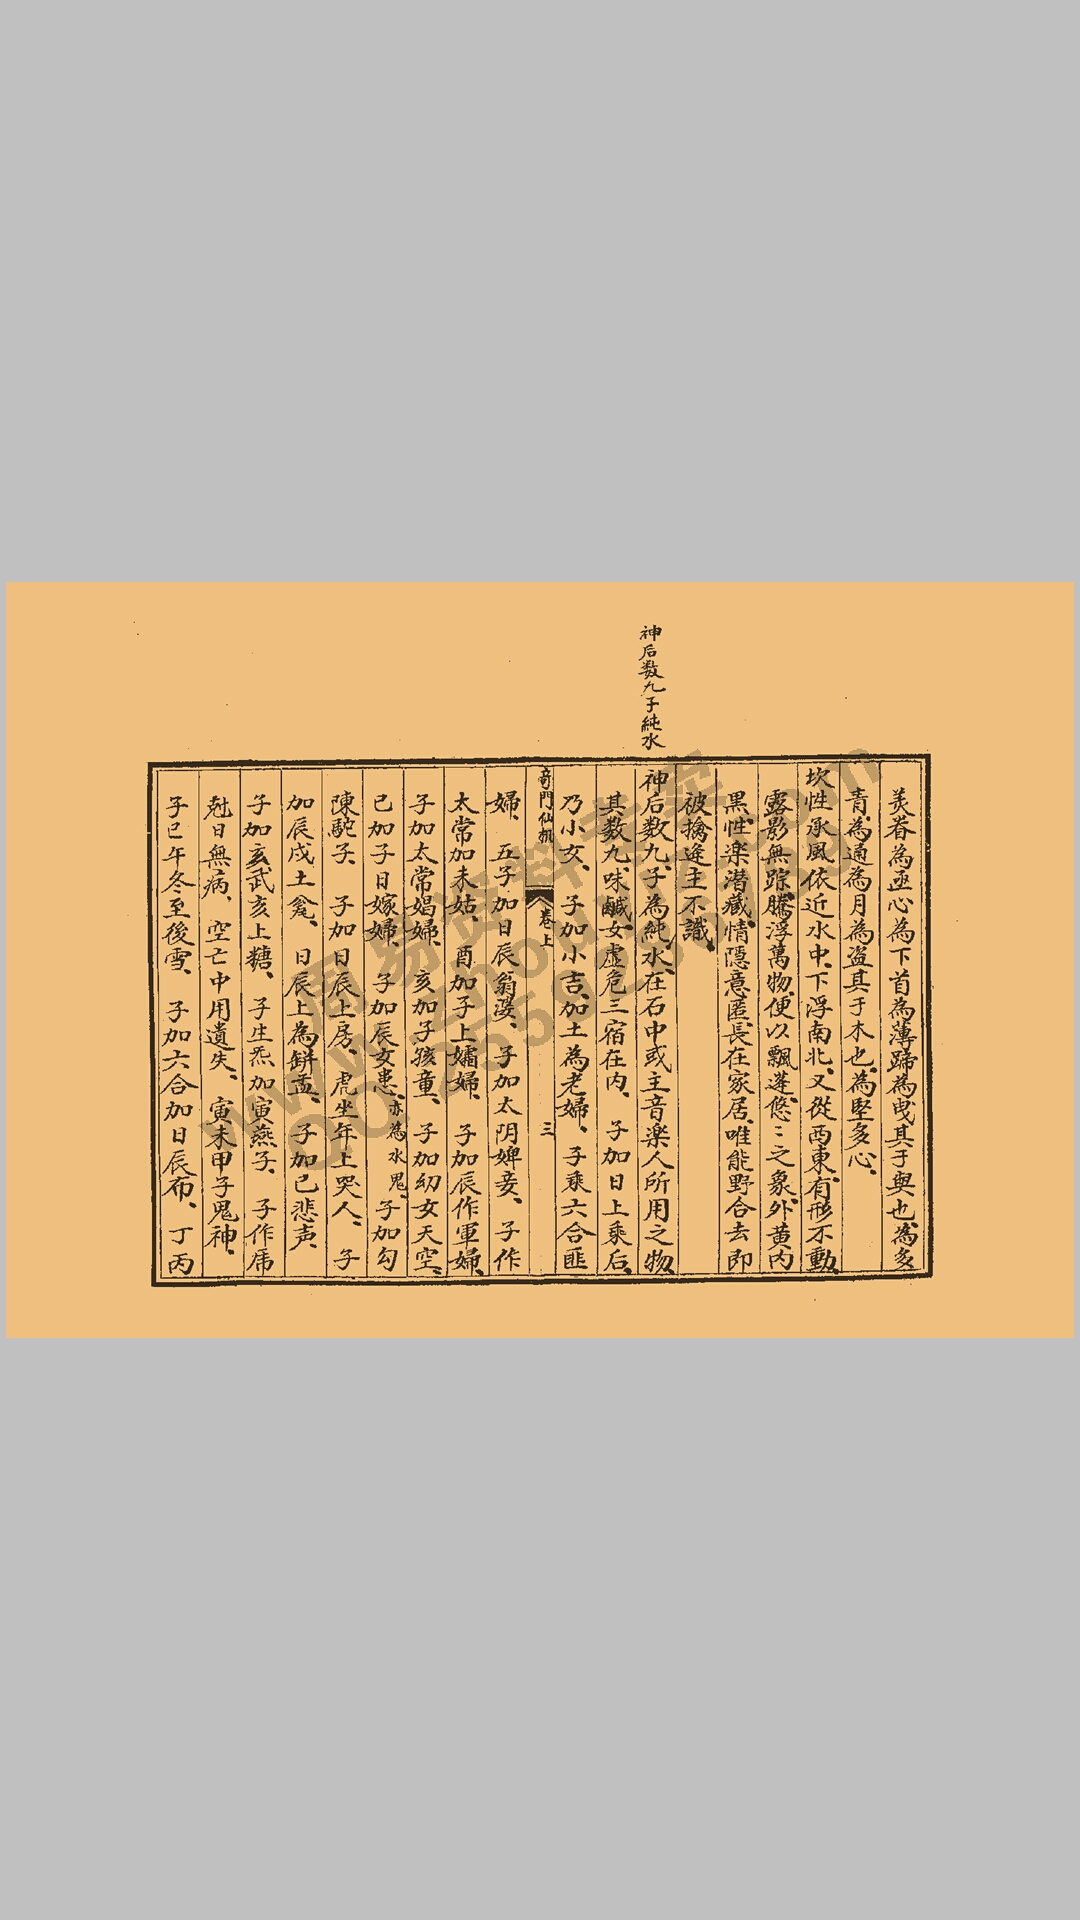 神后数九子純水
美脊為亟心為下首為薄蹄為曳其于輿也為多
青為通為月為盗其于木也為堅多心
坎性承風依近水中下浮南北又從西東有形不動
露影無踪騰浮萬物便以飄蓬悠〻之象外黄内
黑性楽潜藏情隠意匿長在家居唯能野合去即
被擒逢主不識
神后数九子為純水在石中或主音楽人所用之物
其数九味鹹女虚危三宿在内、子加日上乘后
乃小女、子加小吉加土為老婦、子乗六合匪
奇門仙机 卷上 三
婦、五子加日辰翁婆、子加太阴婢妾、子作
太常加未姑、酉加子上孀婦、子加辰作軍婦、
子加太常娼婦、亥加子孩童、子加幼女天空、
已加子日嫁婦、子加辰女患、亦為水鬼、子加勾
陳駝子、子加日辰上房、虎坐年上哭人、子
加辰戌土、日辰上為缾盂、子加已悲声、
子加亥武亥上糖、子生炁加寅燕子、子作
尅日無病、空亡中用遺失、寅未甲子鬼神、
子巳午冬至後雪、子加六合加日辰布、丁丙
周易资料专卖